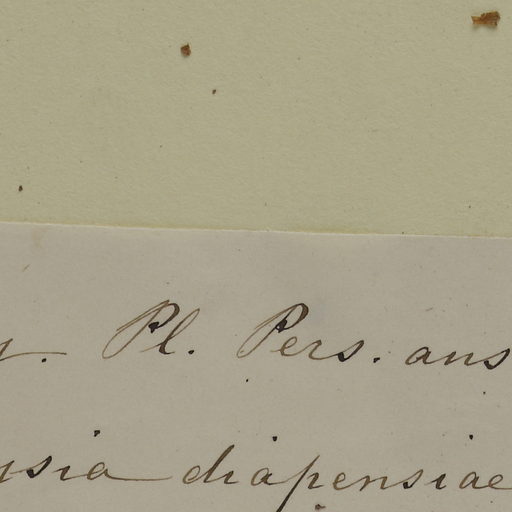 Pl. Pers. aus
diapensiae